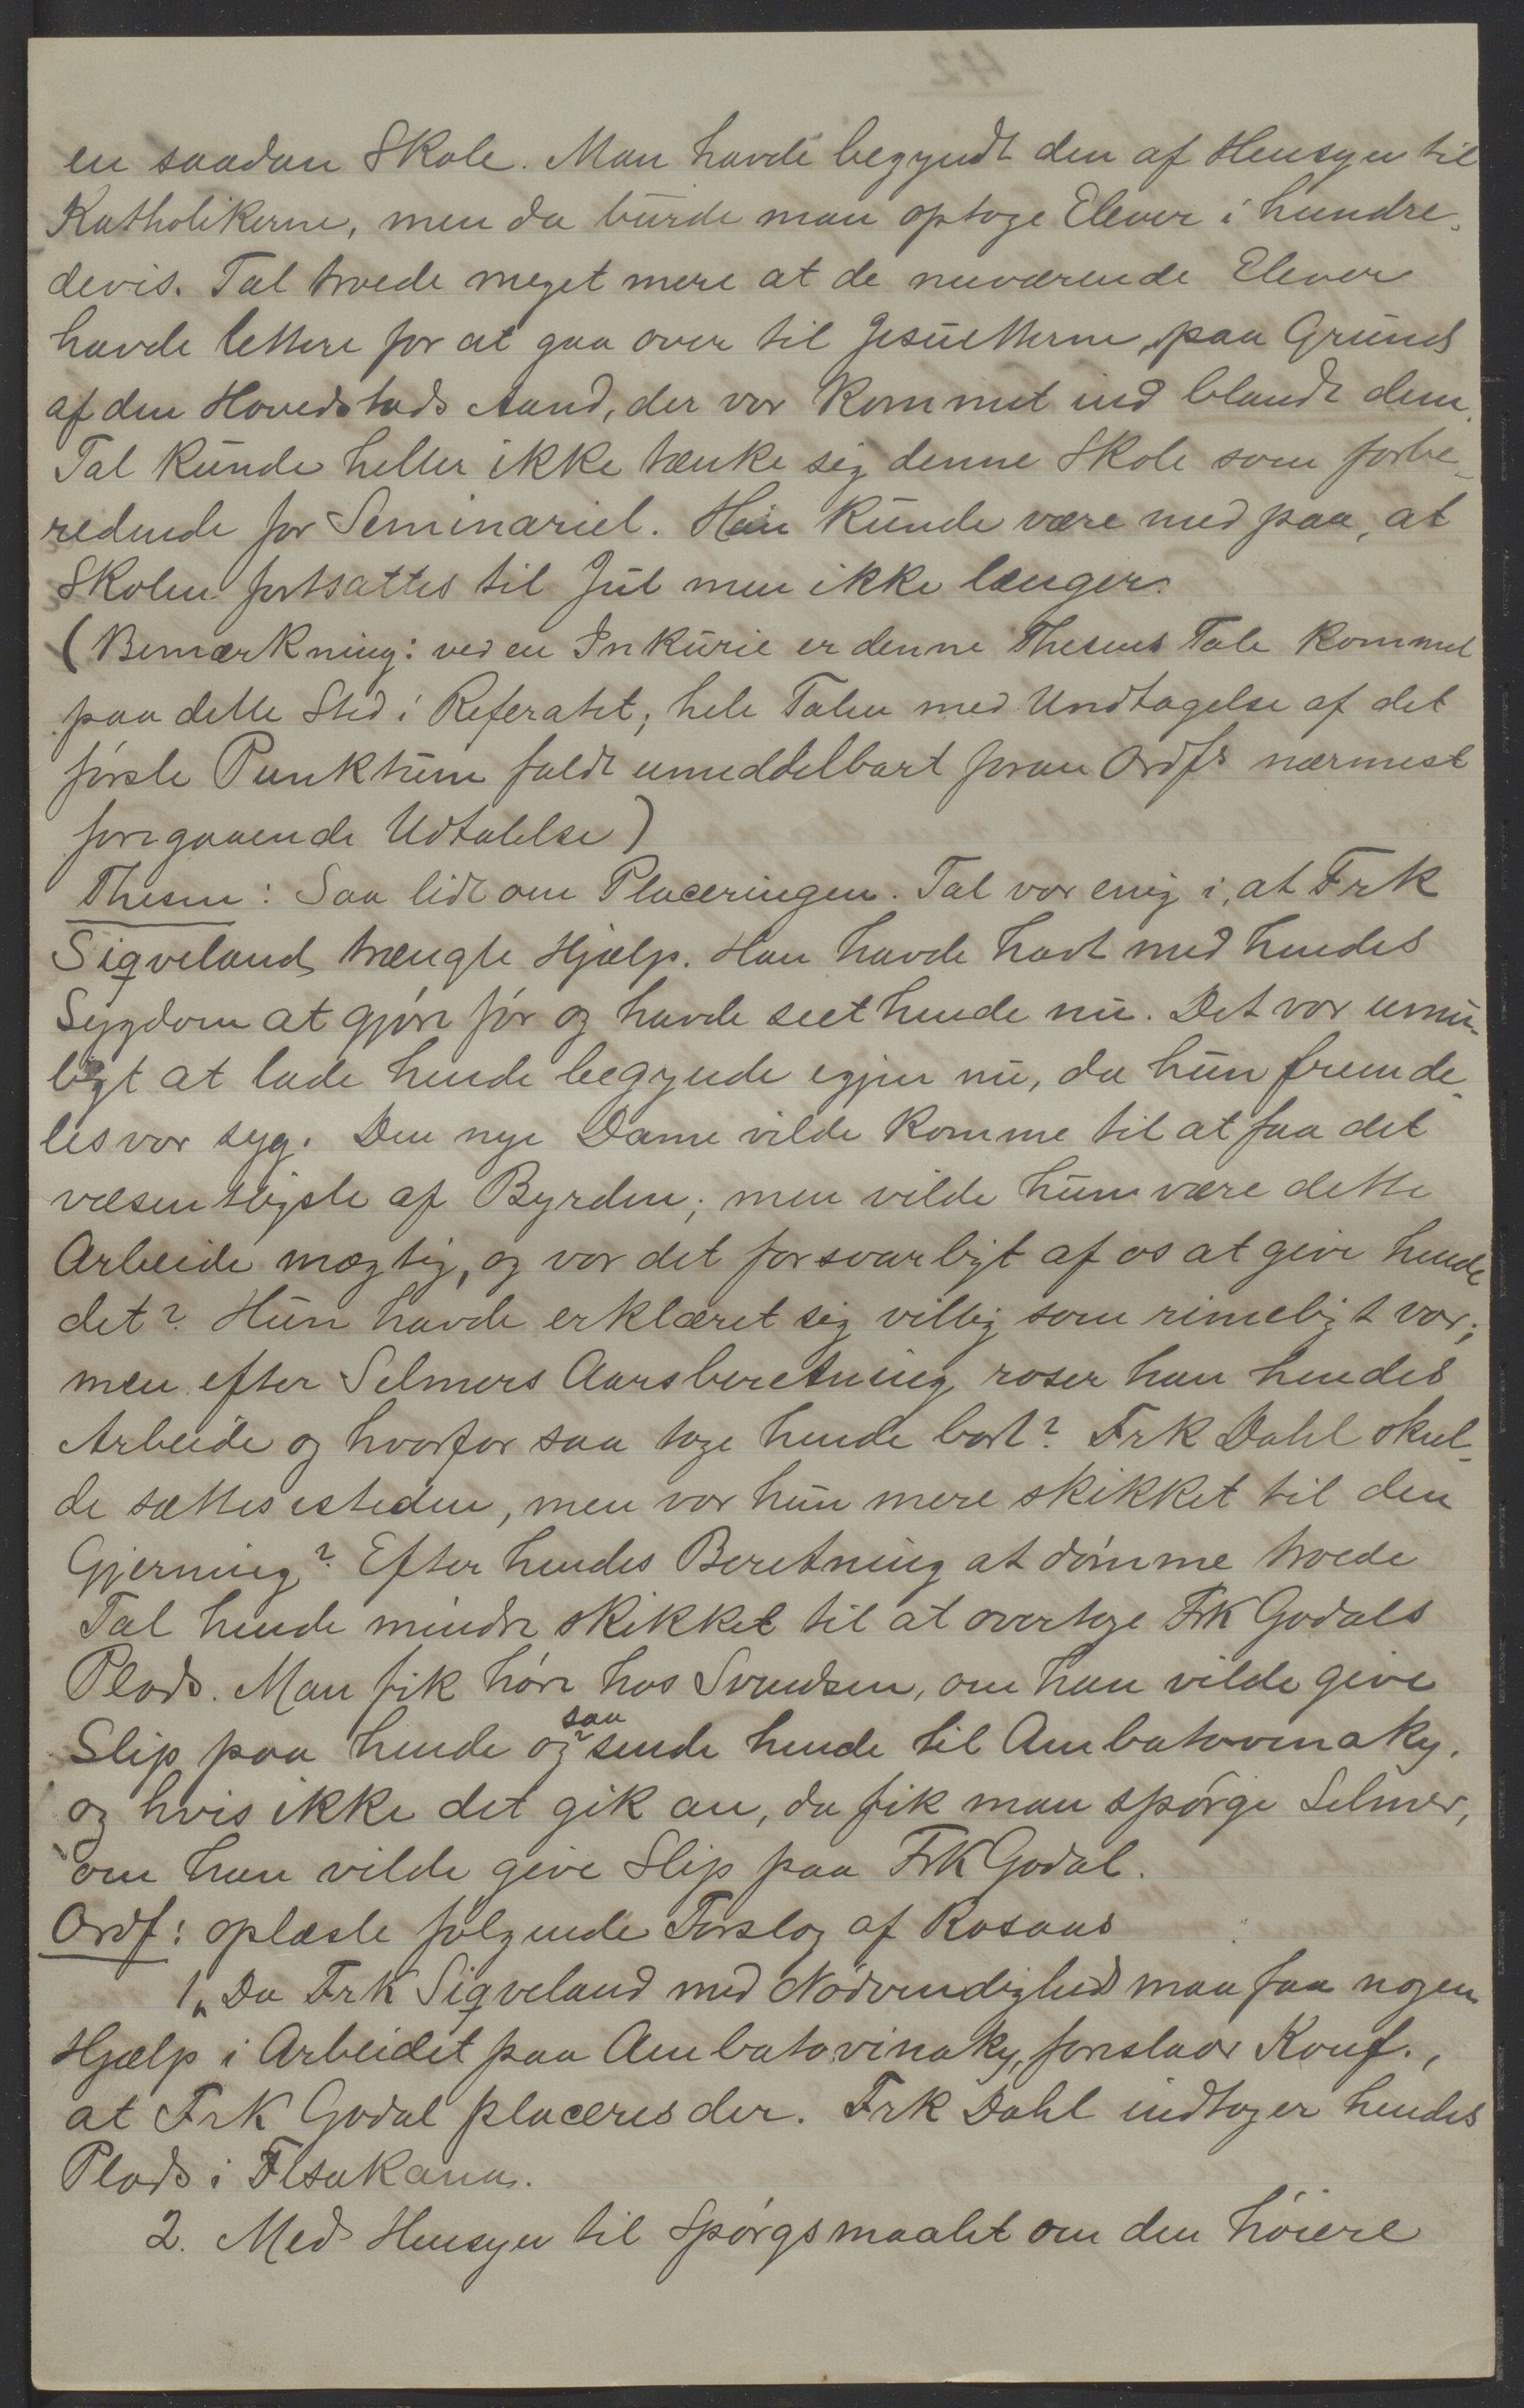 en saadan Skole. Man havde begyndt den af Hensyn til
Katholikerne, men da burde man optage Elever i hundre-
devis. Tal troede meget mere at de nuværende Elever
havde lettere for at gaa over til Jesuitterne, paa Grund
af den Hovedstads Aand, der var kommet ind blandt dem.
Tal kunde heller ikke tænke sig denne Skole som forbe-
redende for Seminariet. Han kunde være med paa, at
Skolen fortsattes til Jul men ikke længer.
(Bemærkning: ved en Inkurie er denne Thesens Tale kommet
paa dette Sted i Referatet; hele Talen med Undtagelse af det
første Punktum faldt umiddelbart foran Ordfs nærmest
foregaaende Udtalelse)
Thesen: Saa lidt om Placeringen. Tal var enig i, at Frk
Sigveland trængte Hjælp. Han havde havt med hendes
Sygdom at gjøre før og havde seet hende nu. Det var umu-
ligt at lade hende begynde igjen nu, da hun fremde-
les var syg. Den nye Dame vilde komme til at faa det
væsentligste af Byrden; men vilde hun være dette
Arbeide mægtig, og var det forsvarligt af os at give hende
det? Hun havde erklæret sig villig som rimeligt var;
men efter Selmers Aarsberetning roser han hendes
Arbeide og hvorfor saa tage hende bort? Frk Dahl skul-
de sættes isteden, men var hun mere skikket til den
Gjerning? Efter hendes Beretning at dømme troede
Tal hende mindre skikket til at overtage Frk Godals
Plads. Man fik høre hos Svendsen, om han vilde give
Slip paa hende og saa sende hende til Ambatovinaky.
og hvis ikke det gik an, da fik man spørge Selmer,
om han vilde give Slip paa Frk Godal.
Ordf: oplæste følgende Forslag af Rosaas
1, Da Frk Sigveland med Nødvendighed maa faa nogen
Hjælp i Arbeidet paa Ambatovinaky, foreslaar Konf.,
at Frk Godal placeres der. Frk Dahl indtager hendes
Plads i Fisakana.
2. Med Hensyn til Spørgsmaalet om den høiere